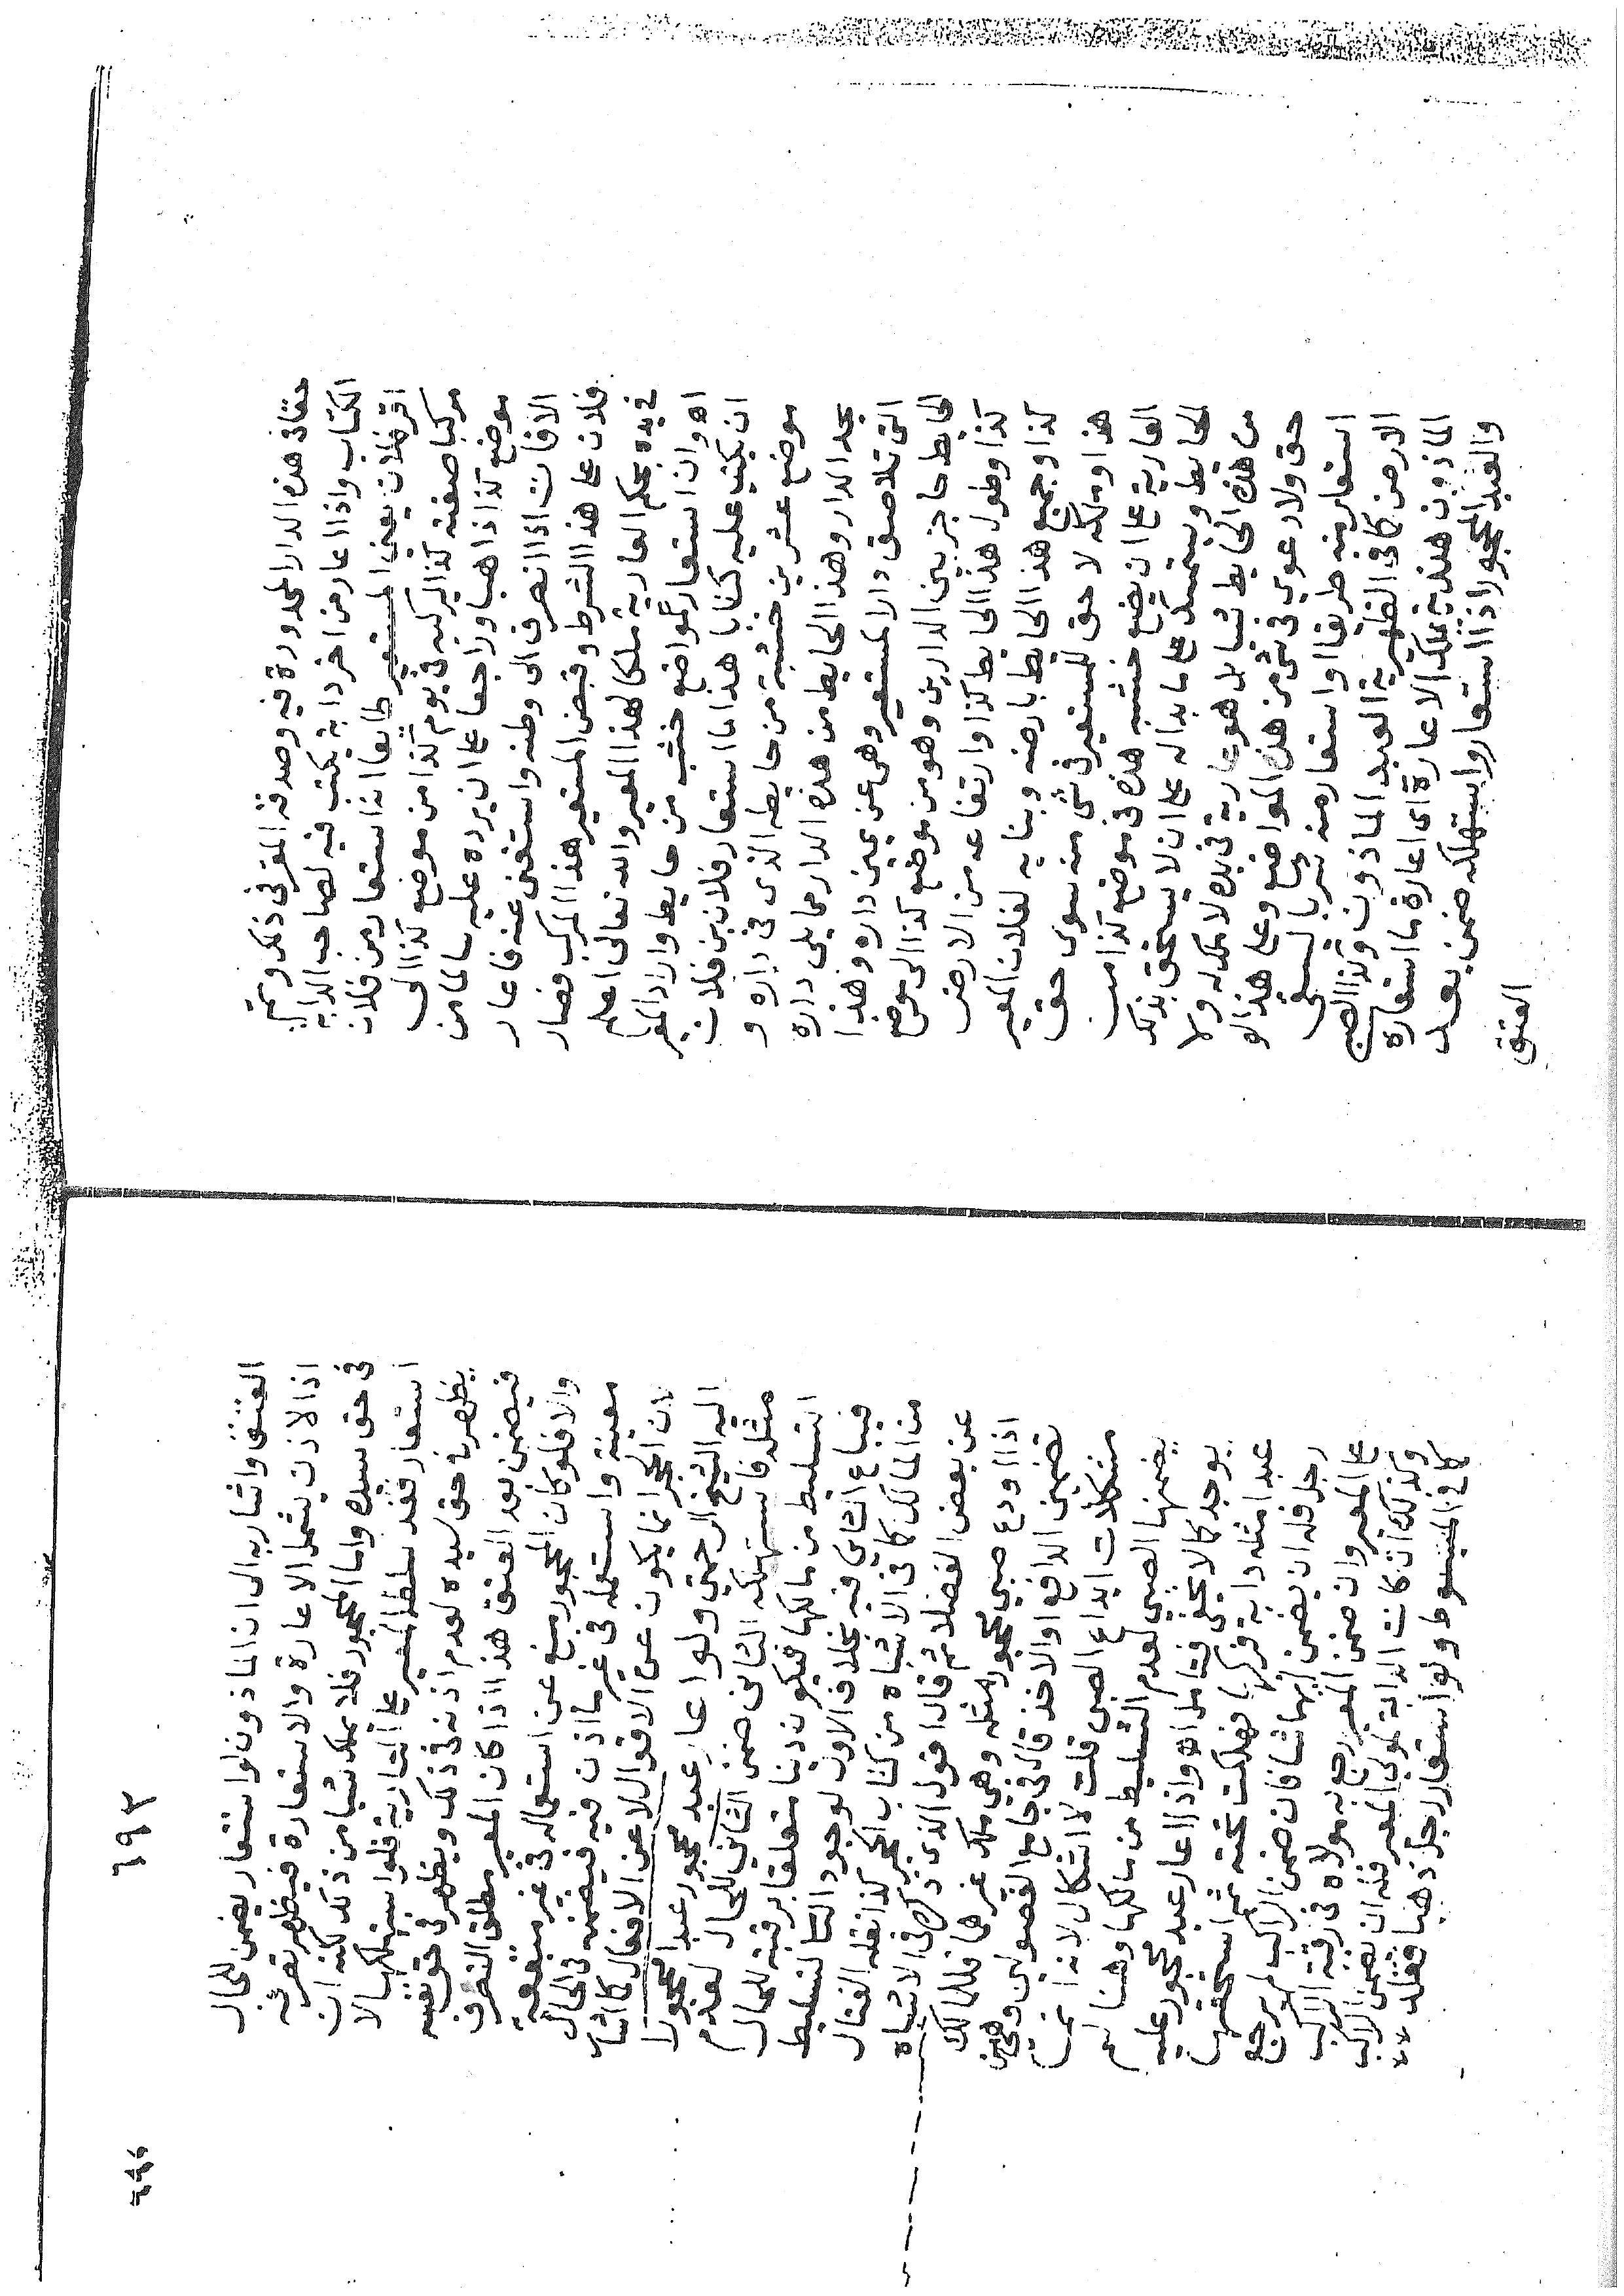 حقا في هذه الدار المحدودة فيه وصدقه المقر في ذلك ويتم
الكتاب واذا اعار من اخر دابة يكتب فيه لصاحب الدابة
اقر فلان يعني المستعير طايعا انه استعار من فلان
مركبا صفته كذا ليركبه في يوم كذا من موضع كذا الى
موضع كذا ذاهبا وراجعا على ان يرده عليه سالما من
الافات اذا انصرف الى وطنه واستغنى عنه فاعار
فلان على هذا الشرط وقبض المستعير هذا المركب فصار
في يده بحكم العارية ملكا لهذا المعير والله تعالى اعلم
اه وان استعار مواضع خشب من حايط واراد المعير
ان يكتب عليه كتابا هذا ما استعار فلان بن فلان
موضع عشرين خشبة من حايطه الذي في داره و
يحد الدار وهذا الحايط من هذه الدار مما يلي داره
التي تلاصق دار المستعير وهي عن يمين داره وهذا
الحايط حاجز بين الدارين وهو من موضع كذا الى موضع
كذا وطول هذا الحايط كذا وارتفاعه من الارض
كذا وجميع هذا الحايط بارضه وبنايه لفلان المعير
هذا وملكه لا حق للمستعير في شي منه سوى حق
العارية على ان يضع خشبه هذه في موضع كذا من
الحايط ويتمسك على ما بدا له على ان لا يستحق بذلك
من هذه الحايط شيا بل هو عارية في يده لا ملك له ولا
حق ولا دعوى في شي من هذه المواضع وعلى هذا لو
استعار منه طريقا او استعار منه شربا لسقي
الارض كما في الظهيرية العبد الماذون وكذا الصبي
الماذون هندية يملك الاعارة اي اعارة ما استعاره
والعبد المحجور اذا استعار واستهلكه ضمن بعد
العتق
٦٩٢
العتق واشار به الى ان الماذون لو استعار يضمن للحال
اذ الاذن يشمل الاعارة والاستعارة فيظهر تصرفه
في حق سيده واما المحجور فلا يملك شيا من ذلك لكنه ان
استعار فقد سلطه المعير على العارية فلو استهلكها لا
يظهر في حق سيده لعدم اذنه في ذلك ويظهر في حق نفسه
فيضمن بعد العتق هذا اذا كان المعير مطلق التصرف
والا فلو كان المحجور منع عن استعماله في غير منفعة
معينة واستعمله في غير ما اذن فيه فيضمنه في الحال
لان الحجر انما يكون عن الاقوال لا عن الافعال كما اشار
اليه الشيخ الرحمتي ولو اعار عبد محجور عبدا محجورا
مثله فاستهلكه الثاني ضمن الثاني للحال لعدم
التسليط من مالكها فيكون دينا متعلقا برقبته للحال
فيباع الثاني فيه بخلاف الاول لوجود التسليط
من المالك كما في الاشباه من كتاب الحجر كذا نقله الفتال
عن بعض الفضلا ثم قال اقول الذي ذكره في الاشباه
اذا اودع صبي محجور مثله وهي ملك غيرهما فللمالك
تضمين الدافع او الاخذ قال في جامع الفصولين وهي من
مشكلات ايداع الصبي قلت لا اشكال لانه انما
يضمنها الصبي لعدم التسليط من مالكها وهنا لم
يوجد كما لا يخفى فتامل اه واذا اعار عبد محجور عليه
عبدا مثله دابة فركبها فهلكت تحته ثم استحقها
رجل فله ان يضمن ايهما شا فان ضمن الراكب لم يرجع
على المعير وان ضمن المعير رجع به مولاه في رقبة الراكب
وكذلك ان كانت الدابة لمولى المعير فله ان يضمن الراكب
كما في المبسوط ولو استعار رجل ذهبا فقلده